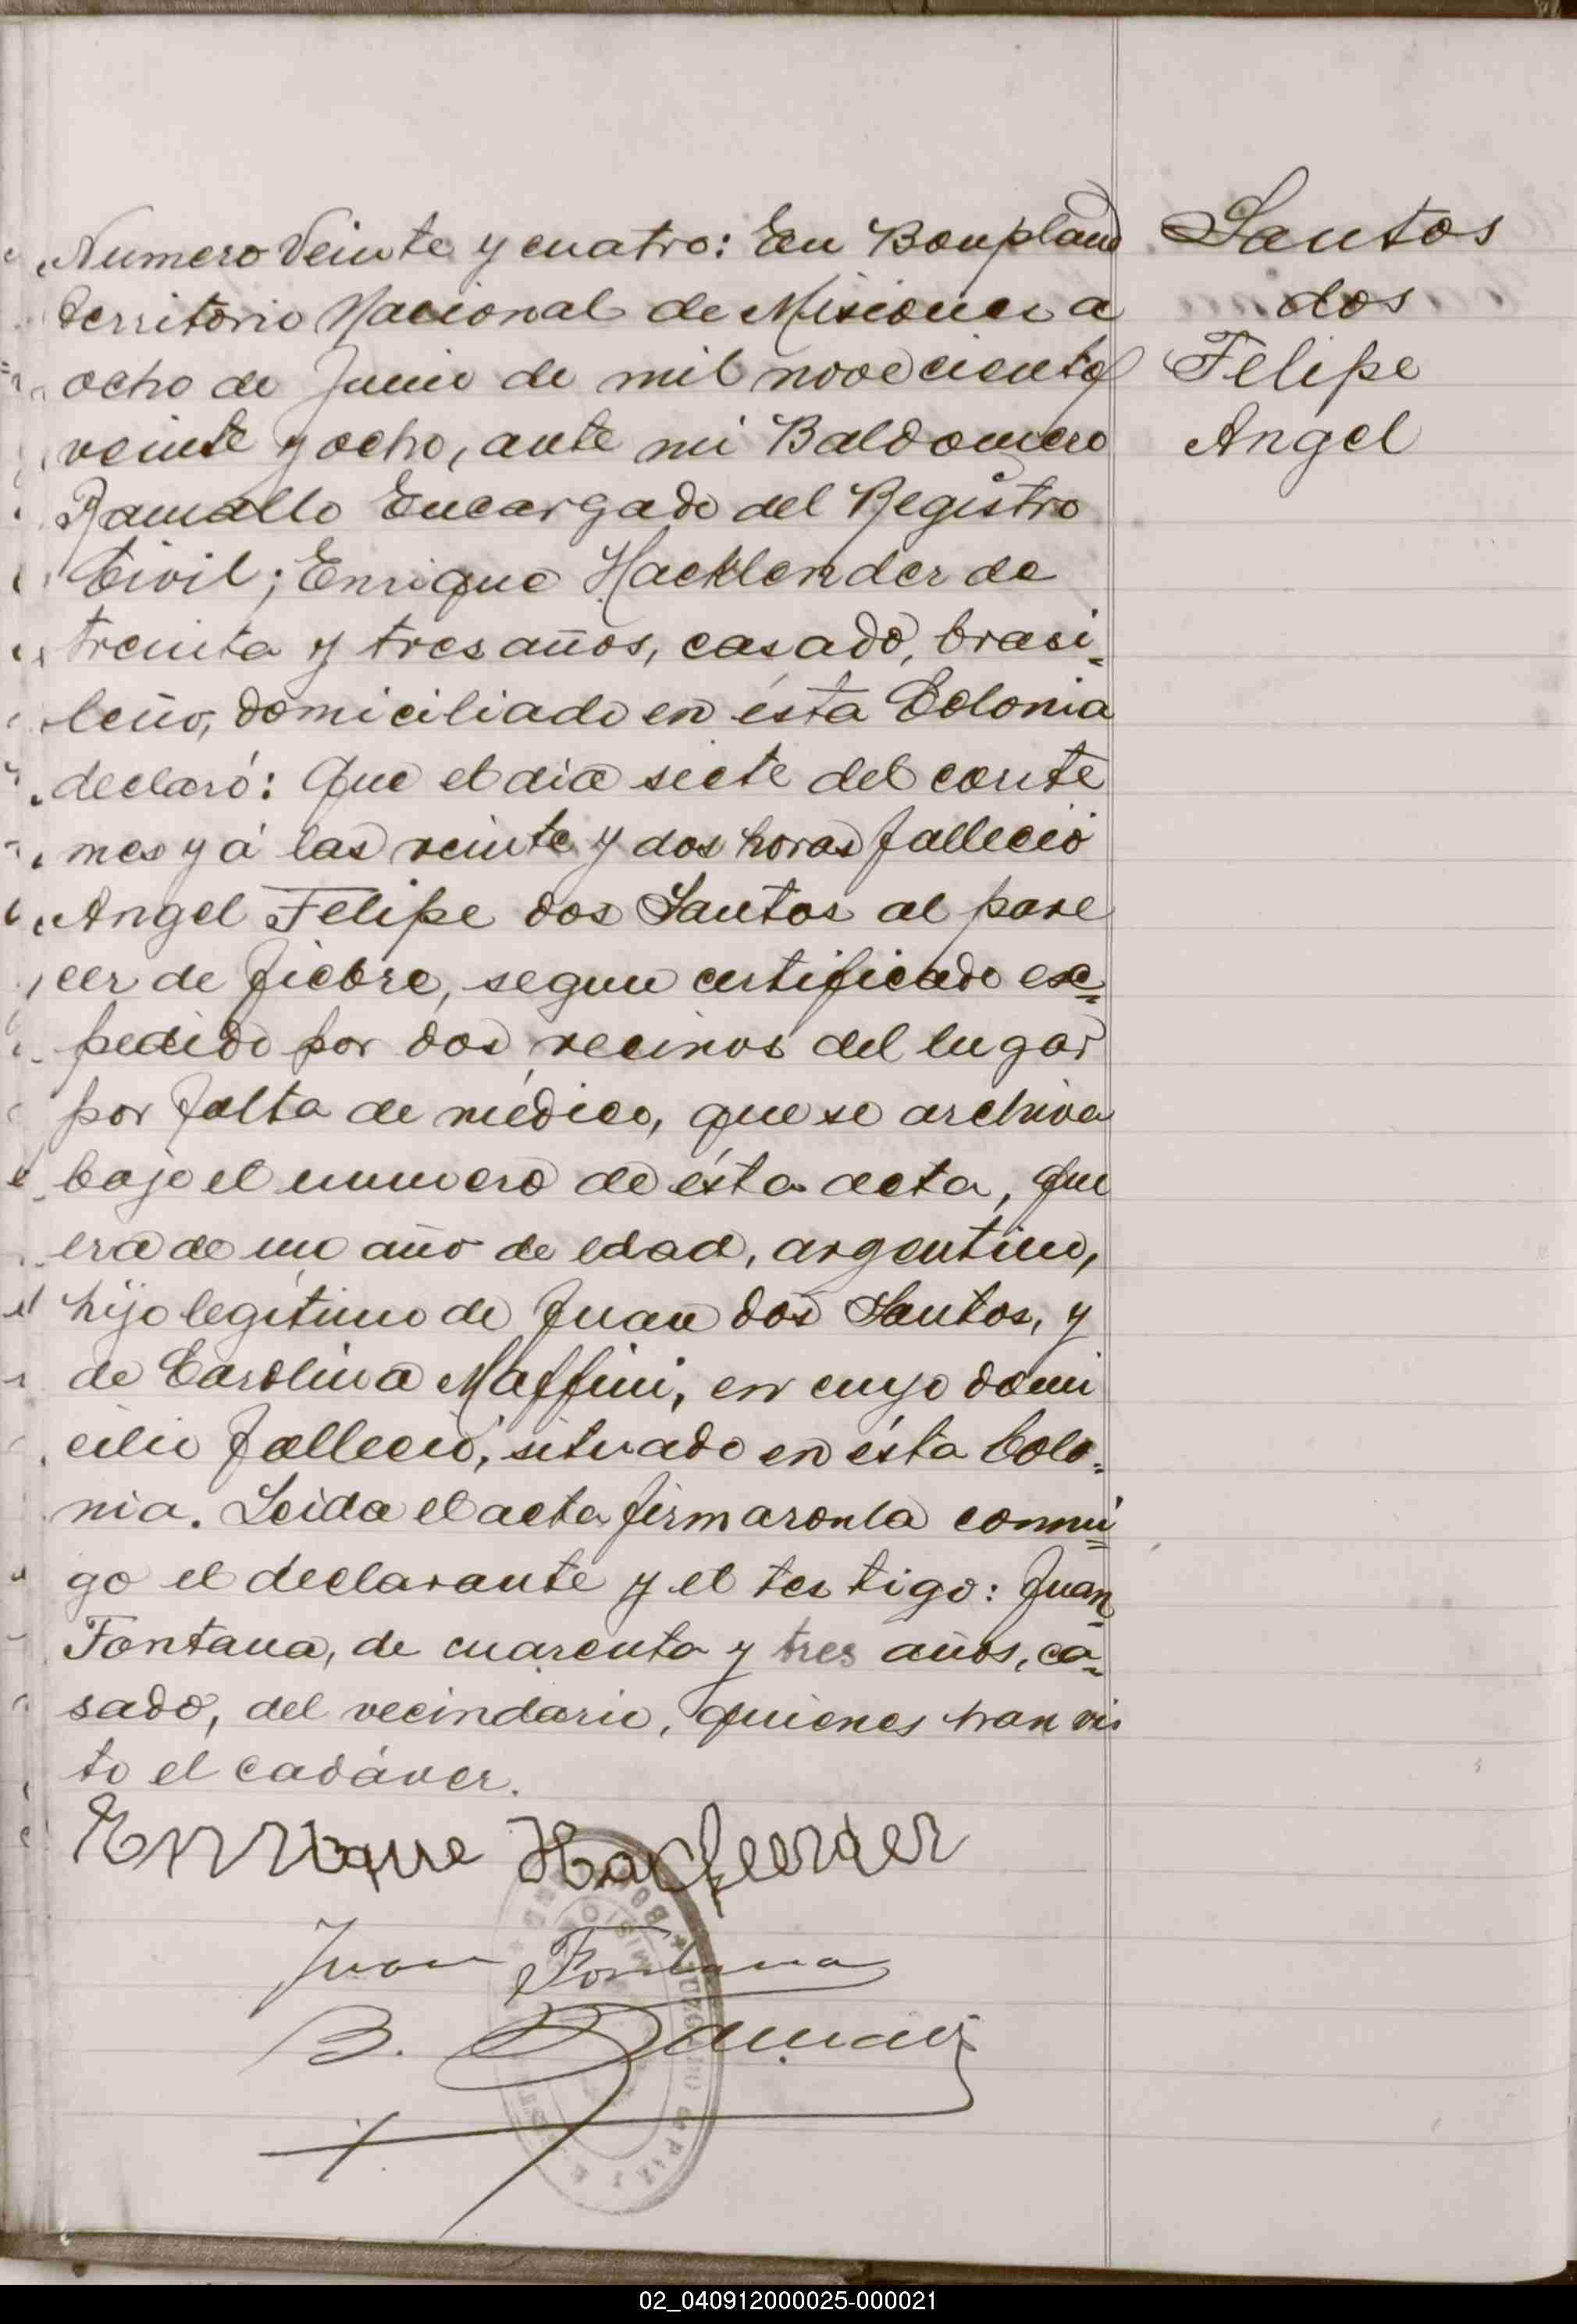 Santos
dos
Felipe
Angel
Numero Veinte y cuatro: En Bonpland
territorio Nacional de Misiones a
ocho de Junio de mil novecientos
veinte y ocho, ante mi Baldomero
Ramallo Encargado del Registro
Civil; Enrique Hacklender de
treinta y tres años, casado, brasi=
leño, domiciliado en ésta Colonia
declaró: Que el dia siete del corrte
mes y á las veinte y dos horas falleció
Angel Felipe dos Santos al pare
cer de fiebre, segun certificado ex=
pedido por dos vecinos del lugar
por falta de médico, que se archiva
bajo el numero de ésta acta, que
era de un año de edad, argentino,
hijo legítimo de Juan dos Santos, y
de Carolina Maffini, en cuyo domi
cilio falleció, situado en ésta Colo=
nia. Leida el acta firmaronla conmi=
go el declarante y el testigo: Juan
Fontana, de cuarenta y tres años, ca=
sado, del vecindario, quienes han vis
to el cadáver.
Enrique Hacklender
Juan Fontana
B. Ramallo
02_040912000025-000021